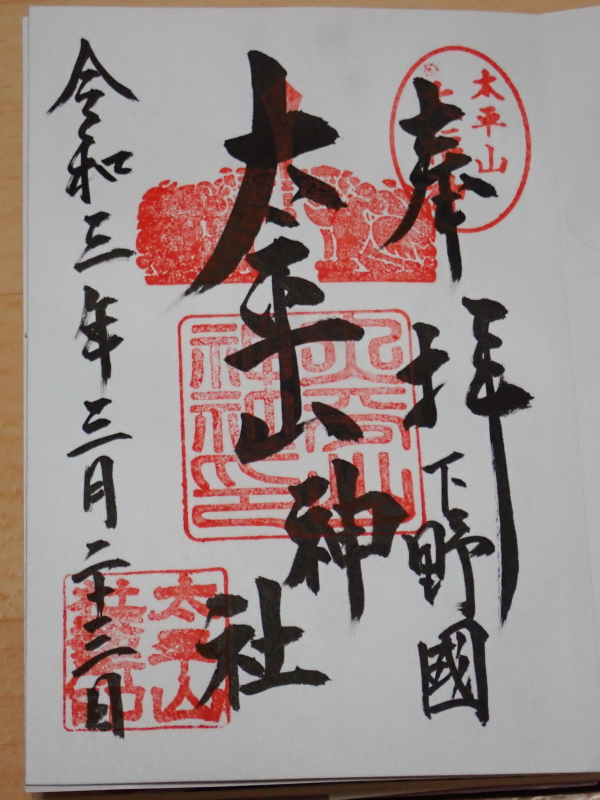 奉拝
下野國
太平山神社
令和三年三月二十三日
太平山
太平山神社印
太平山
社務所